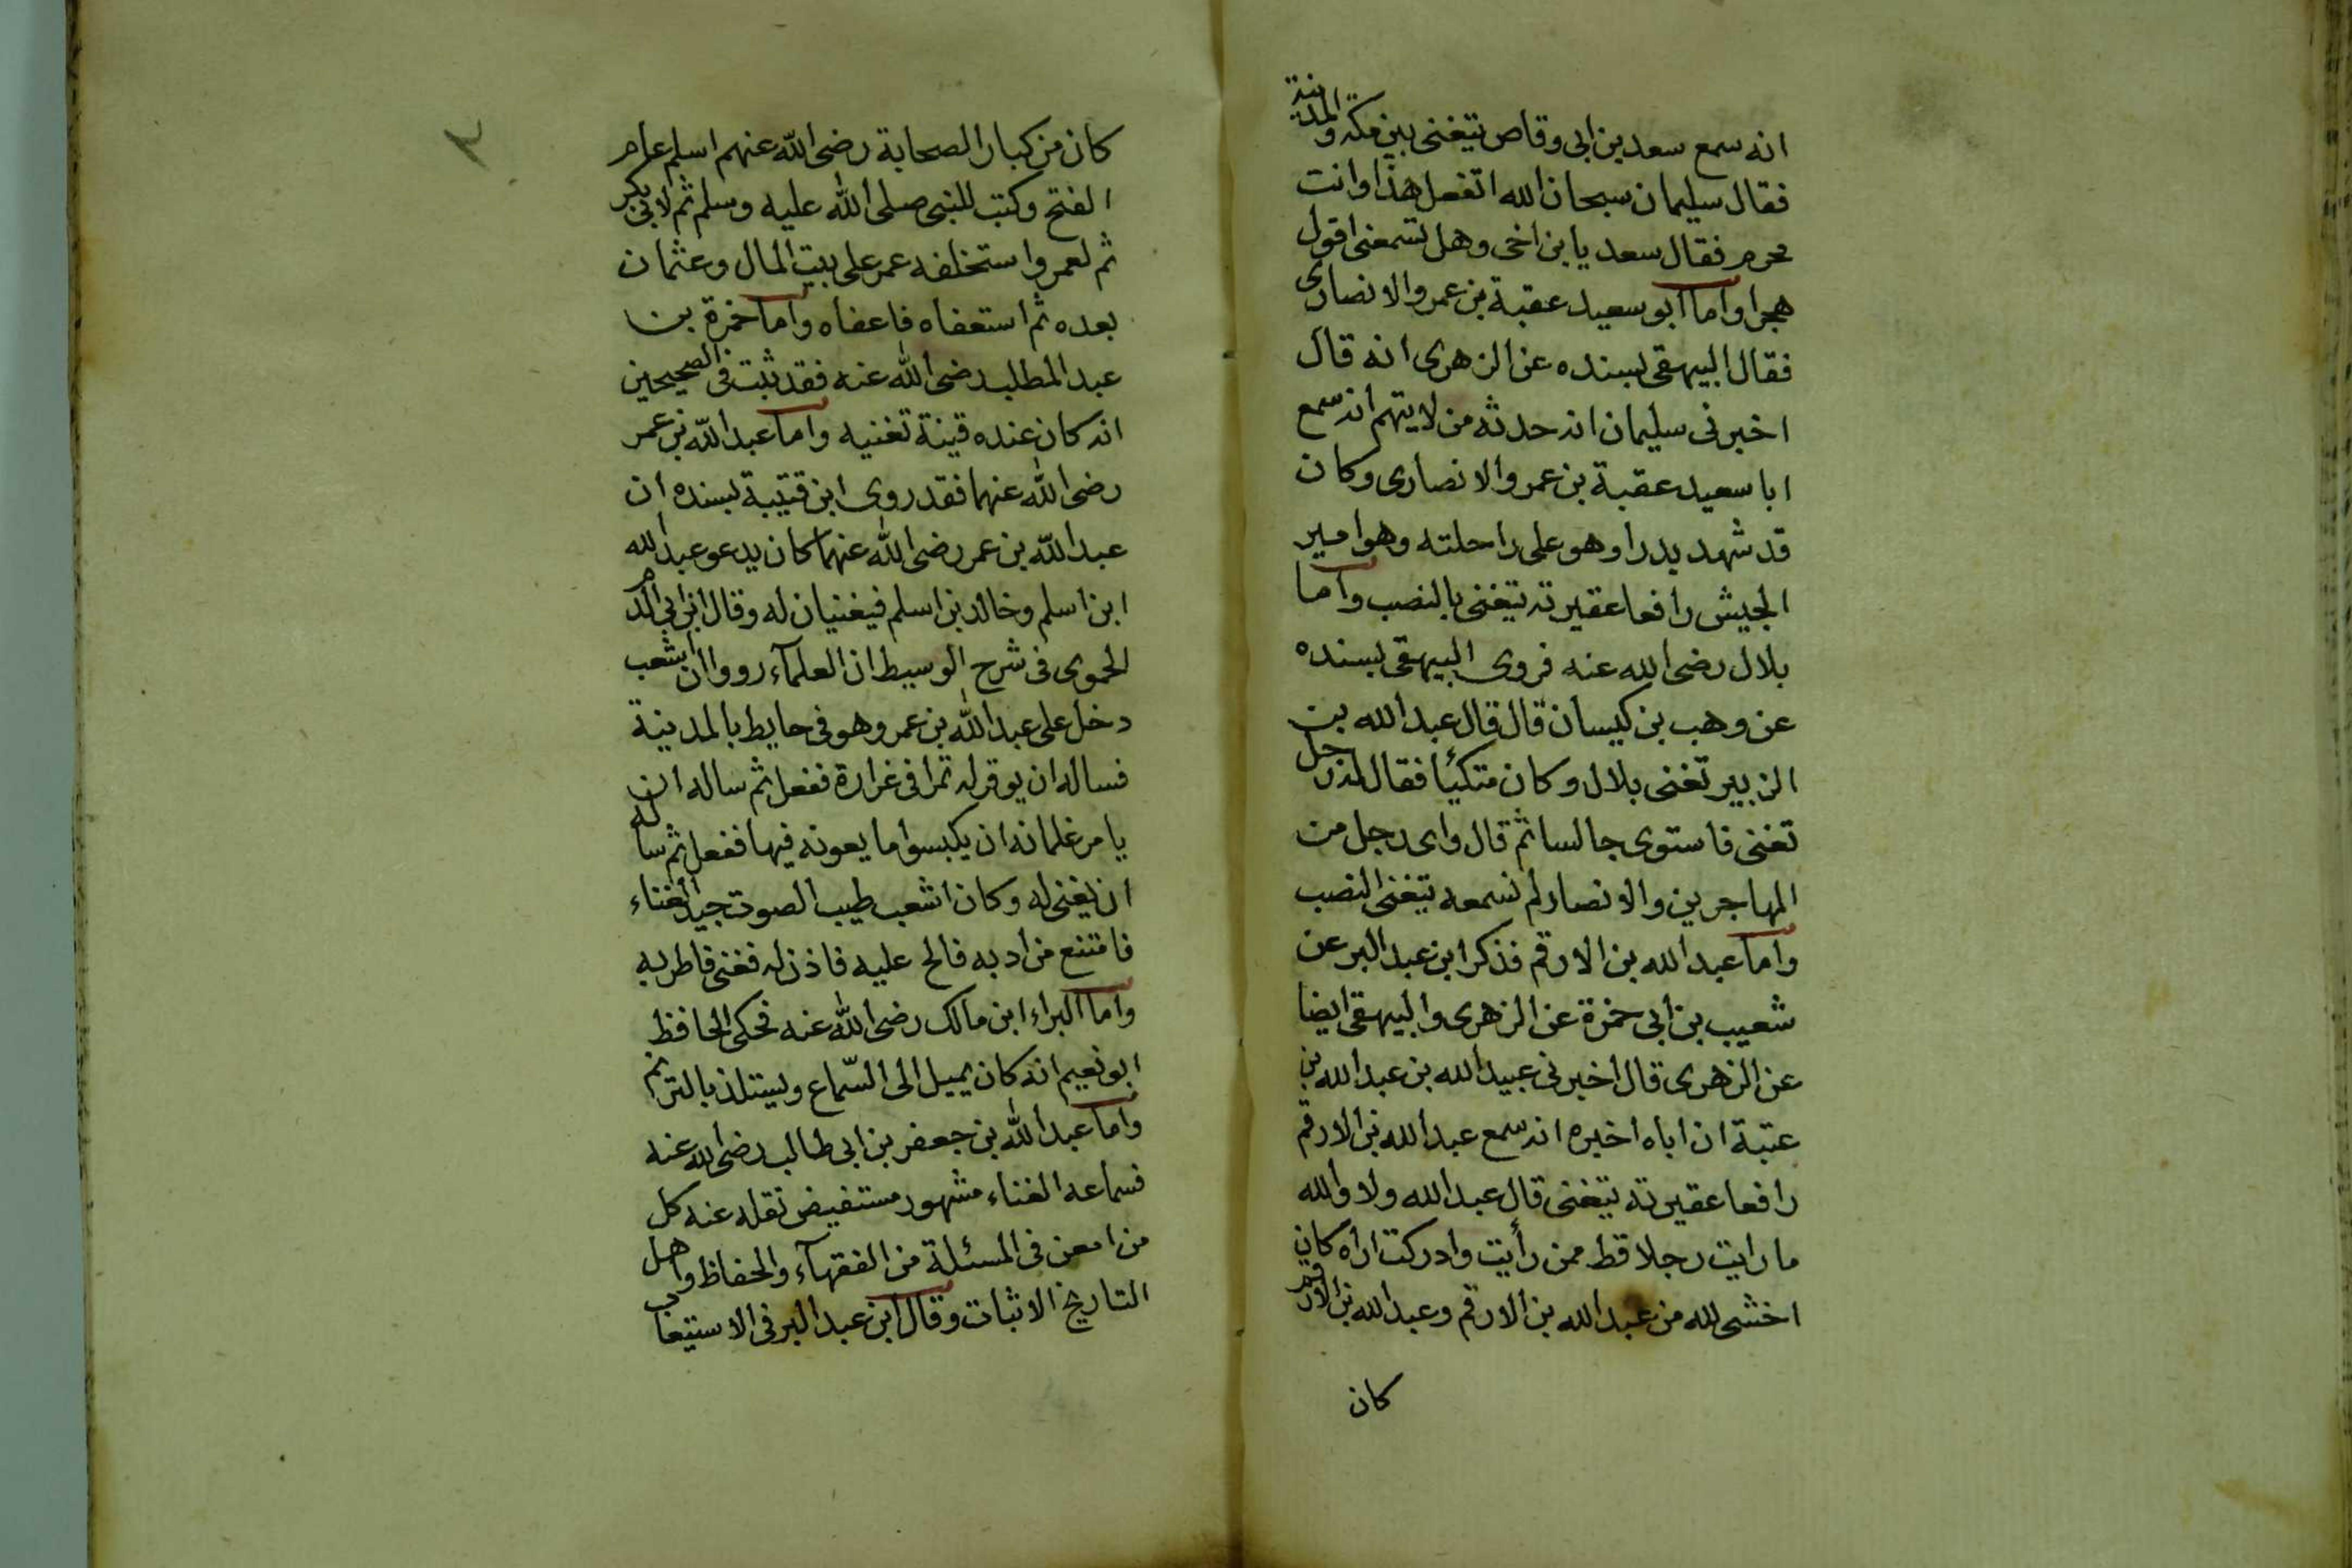 انه سمع سعد بن ابى وقاص يتغنى بين مكة والمدينة
فقال سليمان سبحان الله اتفعل هذا وانت
محرم فقال سعد يا بن اخى وهل تسمعنى اقول
هجرا واما ابو سعيد عقبة بن عمرو الانصارى
فقال البيهقى بسنده عن الزهرى انه قال
اخبرنى سليمان انه حدثه من لا يتهم انه سمع
ابا سعيد عقبة بن عمرو الانصارى وكان
قد شهد بدرا وهو على راحلته وهو امير
الجيش رافعا عقيرته يتغنى بالنصب واما
بلال رضى الله عنه فروى البيهقى بسنده
عن وهب بن كيسان قال قال عبد الله بن
الزبير تغنى بلال وكان متكئا فقال له رجل
تغنى فاستوى جالسا ثم قال واى رجل من
المهاجرين والانصار لم نسمعه يتغنى النصب
واما عبد الله بن الارقم فذكر ابن عبد البر عن
شعيب بن ابى حمزة عن الزهرى والبيهقى ايضا
عن الزهرى قال اخبرنى عبيد الله بن عبد الله بن
عتبة ان اباه اخبره انه سمع عبد الله بن الارقم
رافعا عقيرته يتغنى قال عبد الله ولا والله
ما رايت رجلا قط ممن رأيت وادركت اراه كان
اخشى لله من عبد الله بن الارقم وعبد الله بن الارقم
كان
٣
كان من كبار الصحابة رضى الله عنهم اسلم عام
الفتح وكتب للنبى صلى الله عليه وسلم ثم لابى بكر
ثم لعمر واستخلفه عمر على بيت المال وعثمان
بعده ثم استعفاه فاعفاه واما حمزة بن
عبد المطلب رضى الله عنه فقد ثبت فى الصحيحين
انه كان عنده قينة تغنيه واما عبد الله بن عمر
رضى الله عنهما فقد روى ابن قتيبة بسنده ان
عبد الله بن عمر رضى الله عنهما كان يدعو عبد الله
ابن اسلم وخالد بن اسلم فيغنيان له وقال ابن ابى الدم
الحموى فى شرح الوسيط ان العلمآء رووا ان اشعب
دخل على عبد الله بن عمر وهو فى حايط بالمدينة
فساله ان يوقر له تمرا فى غرارة ففعل ثم ساله ان
يامر غلمانه ان يكبسوا ما يعونه فيها ففعل ثم ساله
ان يغنى له وكان اشعب طيب الصوت جيد الغناء
فامتنع من ادبه فالح عليه فاذن له فغنى فاطربه
واما البراء ابن مالك رضى الله عنه فحكى الحافظ
ابو نعيم انه كان يميل الى السّماع ويستلذ بالترنم
واما عبد الله بن جعفر بن ابى طالب رضى الله عنه
فسماعه الغناء مشهور مستفيض نقله عنه كل
من امعن فى المسئلة من الفقهآء والحفاظ واهل
التاريخ الاثبات وقال ابن عبد البر فى الاستيعاب